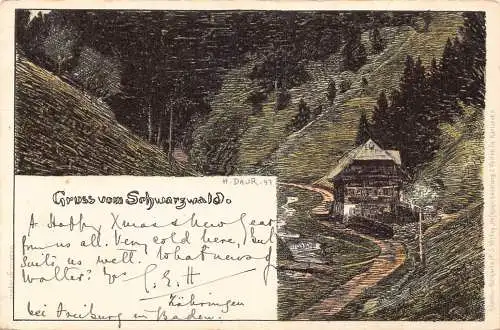 H. DAUR. 97
Gruss vom Schwarzwald.
A Happy Xmas & New Year
from us all. Very cold here, but
suits us well. What news of
Walter? Yrs C. E. H
Zähringen
bei Freiburg in Baden.